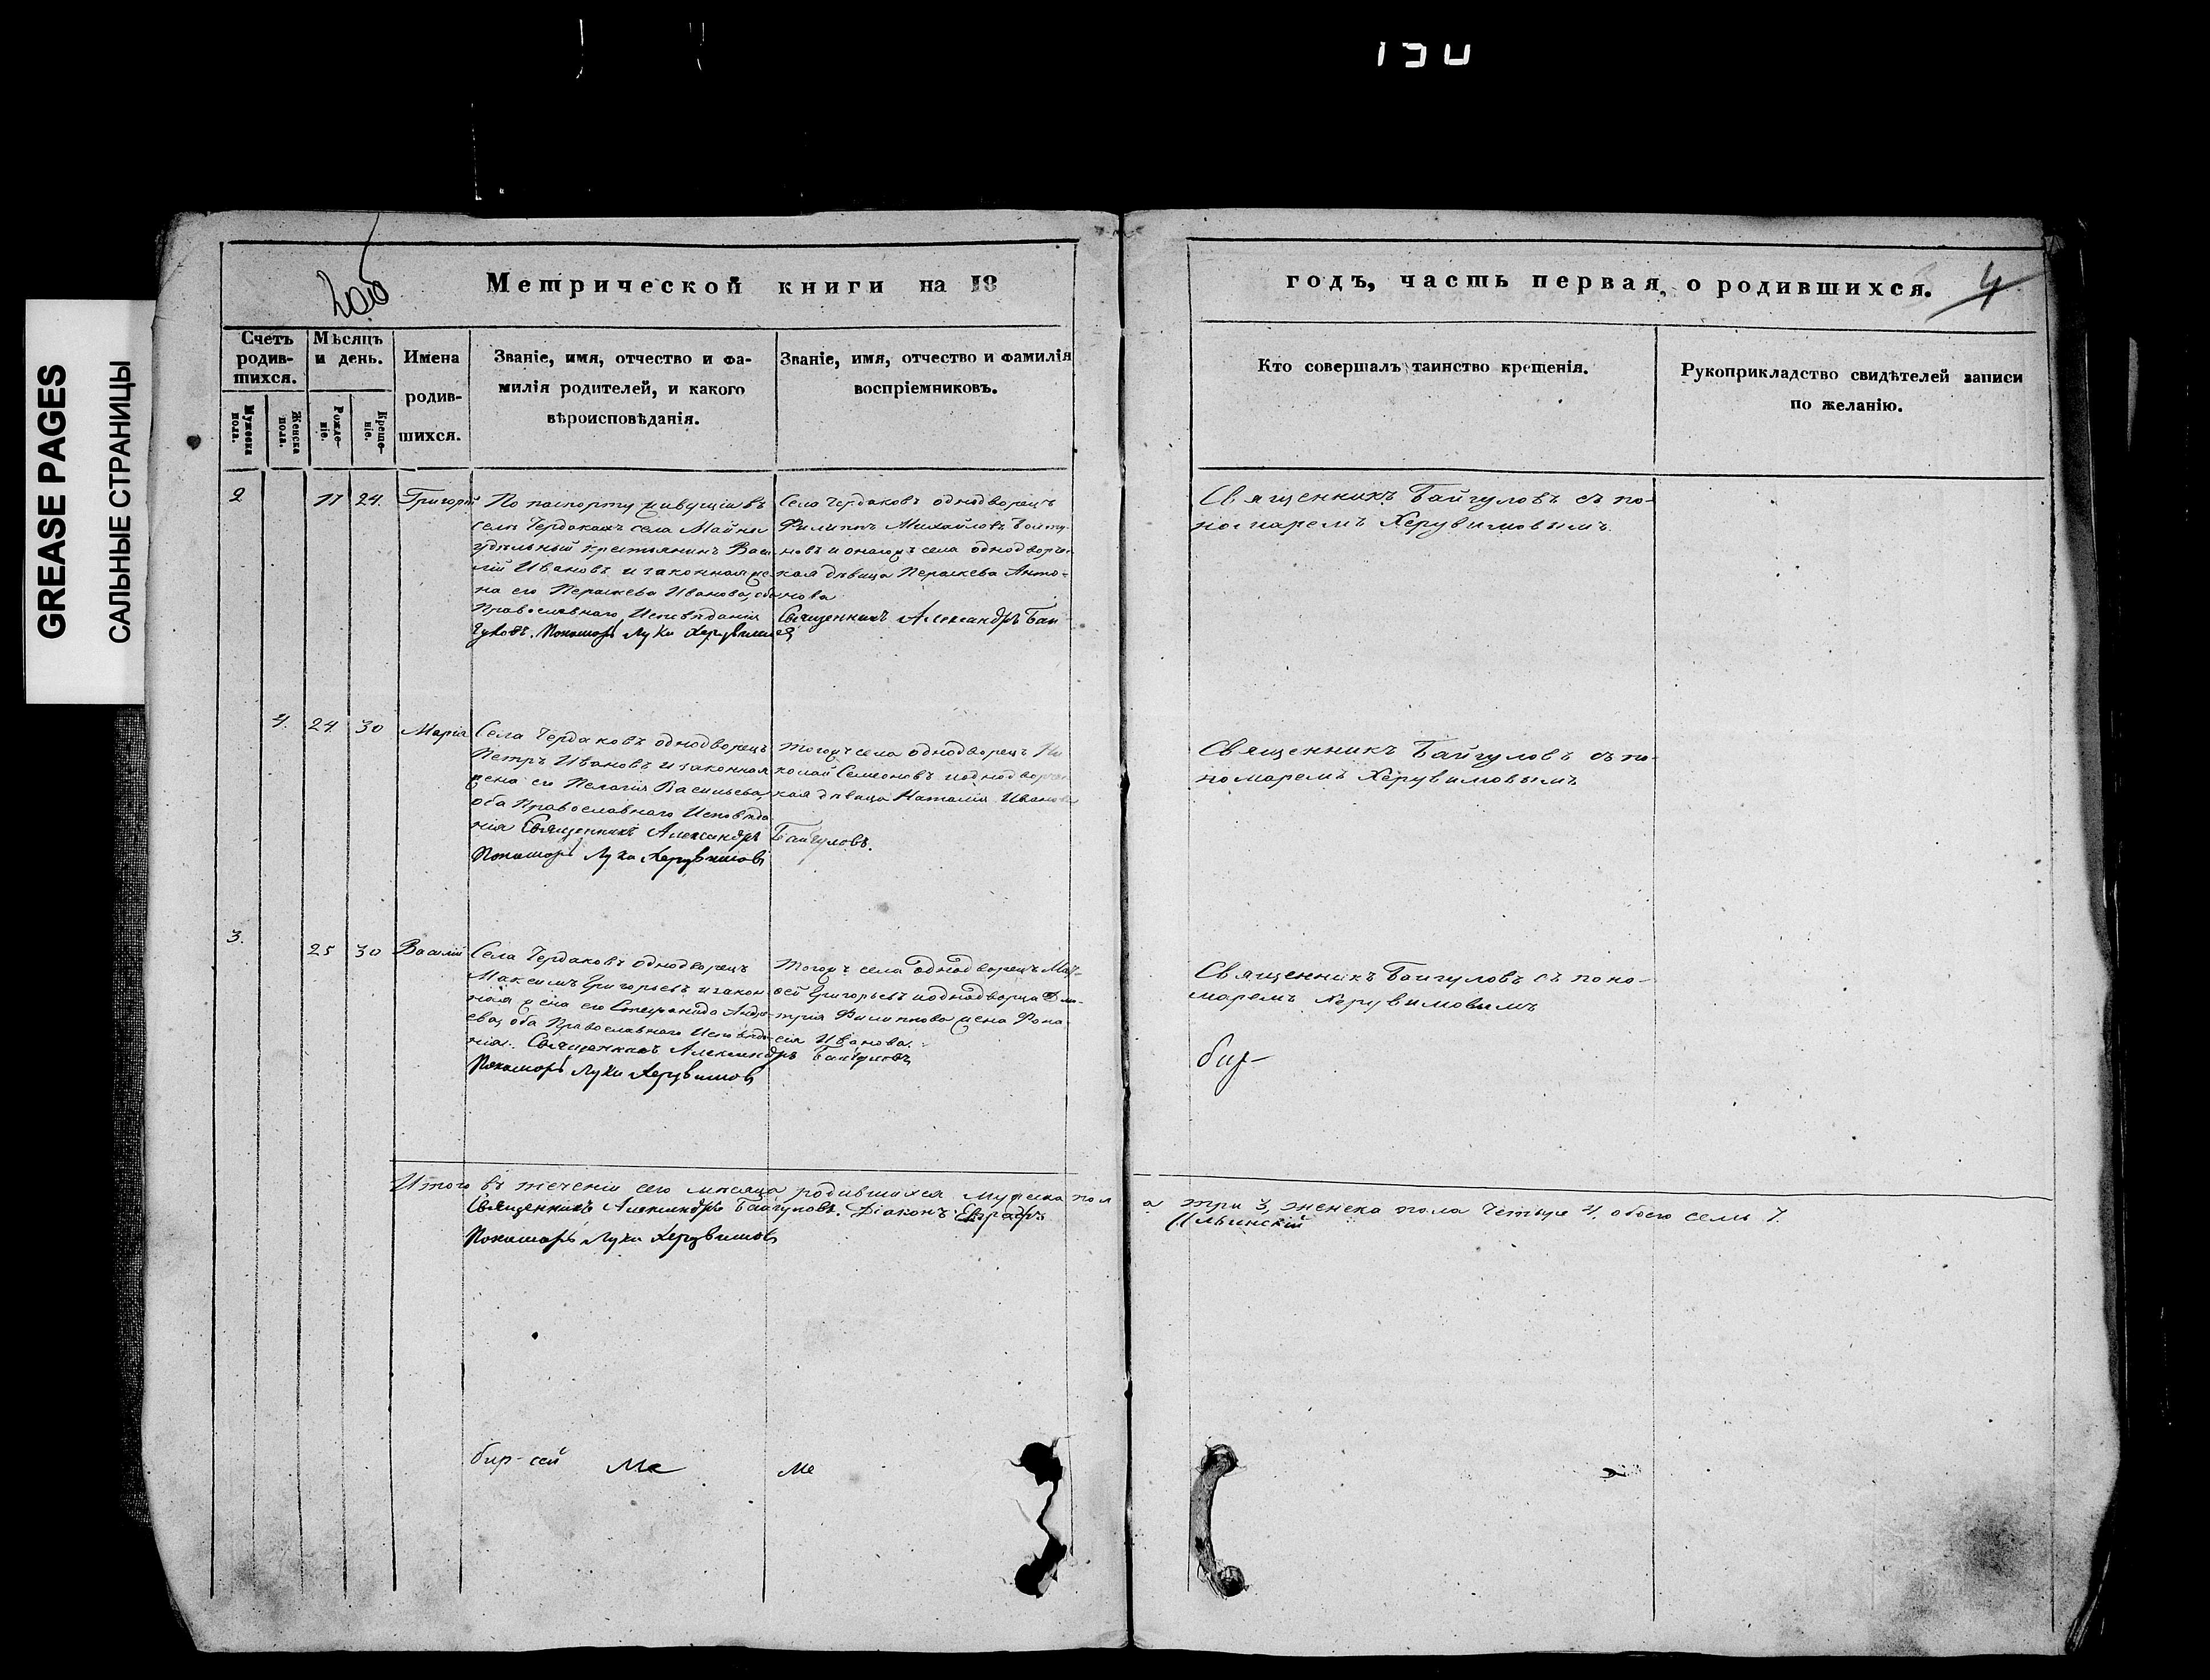 GREASE PAGES
САЛЬНЫЕ СТРАНИЦЫ
Метрической книги на 18
годъ, часть первая, о родившихся.
4
Счетъ родив-
шихся.
Мужеска пола.
Женска пола.
Мѣсяцъ
и день.
Рожде-
ніе.
Креще-
ніе.
Имена
родив-
шихся.
Званіе, имя, отчество и фа-
милія родителей, и какого
вѣроисповѣданія.
Званіе, имя, отчество и фамилія
воспріемниковъ.
Кто совершалъ таинство крещенія.
Рукоприкладство свидѣтелей записи
по желанію.
2
17
24.
Григорій
По паспорту живущій въ
селѣ Чердакахъ села Майны
удѣльный крестьянинъ Васи
лій Ивановъ и законная же
на его Параскева Иванова, оба
Православнаго Исповѣданія
Села Чердаковъ однодворецъ
Филиппъ Михайловъ
новъ и онагожъ села однодворче
кая дѣвица Параскева Анто-
нова
Священникъ Александръ Бай
гуловъ. Пономарь Лука Херувимовъ
Священникъ Байгуловъ съ по-
номаремъ Херувимовымъ.
4.
24
30
Марія
Села Чердаковъ однодворецъ
Петръ Ивановъ и законная
жена его Пелагія Васильева,
оба Православнаго Исповѣда
нія
Тогожъ села однодворецъ Ни
колай Семеновъ и однодворче
кая дѣвица Наталія Иванова
Священникъ Александръ Байгуловъ.
Пономарь Лука Херувимовъ
Священникъ Байгуловъ съ по-
номаремъ Херувимовымъ
3.
25
30
Василій
Села Чердаковъ однодворецъ
Максимъ Григорьевъ и закон
ная жена его Стефанида Андре
ева, оба Православнаго Исповѣда
нія.
Тогожъ села однодворецъ Мат-
ѳей Григорьевъ и однодворца Дми-
трія Филиппова жена
Иванова.
Священникъ Александръ Байгуловъ
Пономарь Лука Херувимовъ
Священникъ Байгуловъ съ поно-
маремъ Херувимовымъ
Итого въ теченіи сего мѣсяца родившихся мужеска пола три 3, женска пола четыре 4, обоего семь 7.
Священникъ Александръ Байгуловъ. Діаконъ Ильинскій
Пономарь Лука Херувимовъ